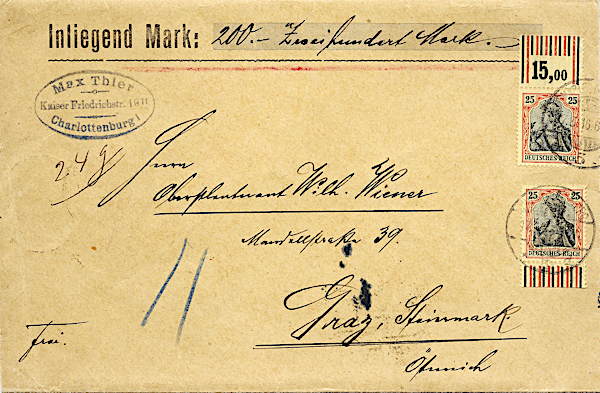 Inliegend Mark: 200.- Zweihundert Mark.
15,00
25 25
DEUTSCHES REICH
Max Thier
Kaiser Friedrichstr.
Charlottenburg
2.4 g
Herrn
Oberstleutnant Wilh. Wiener
Mandellstraße 39.
25 25
DEUTSCHES REICH
Graz, Steiermark.
Frei.
Östreich